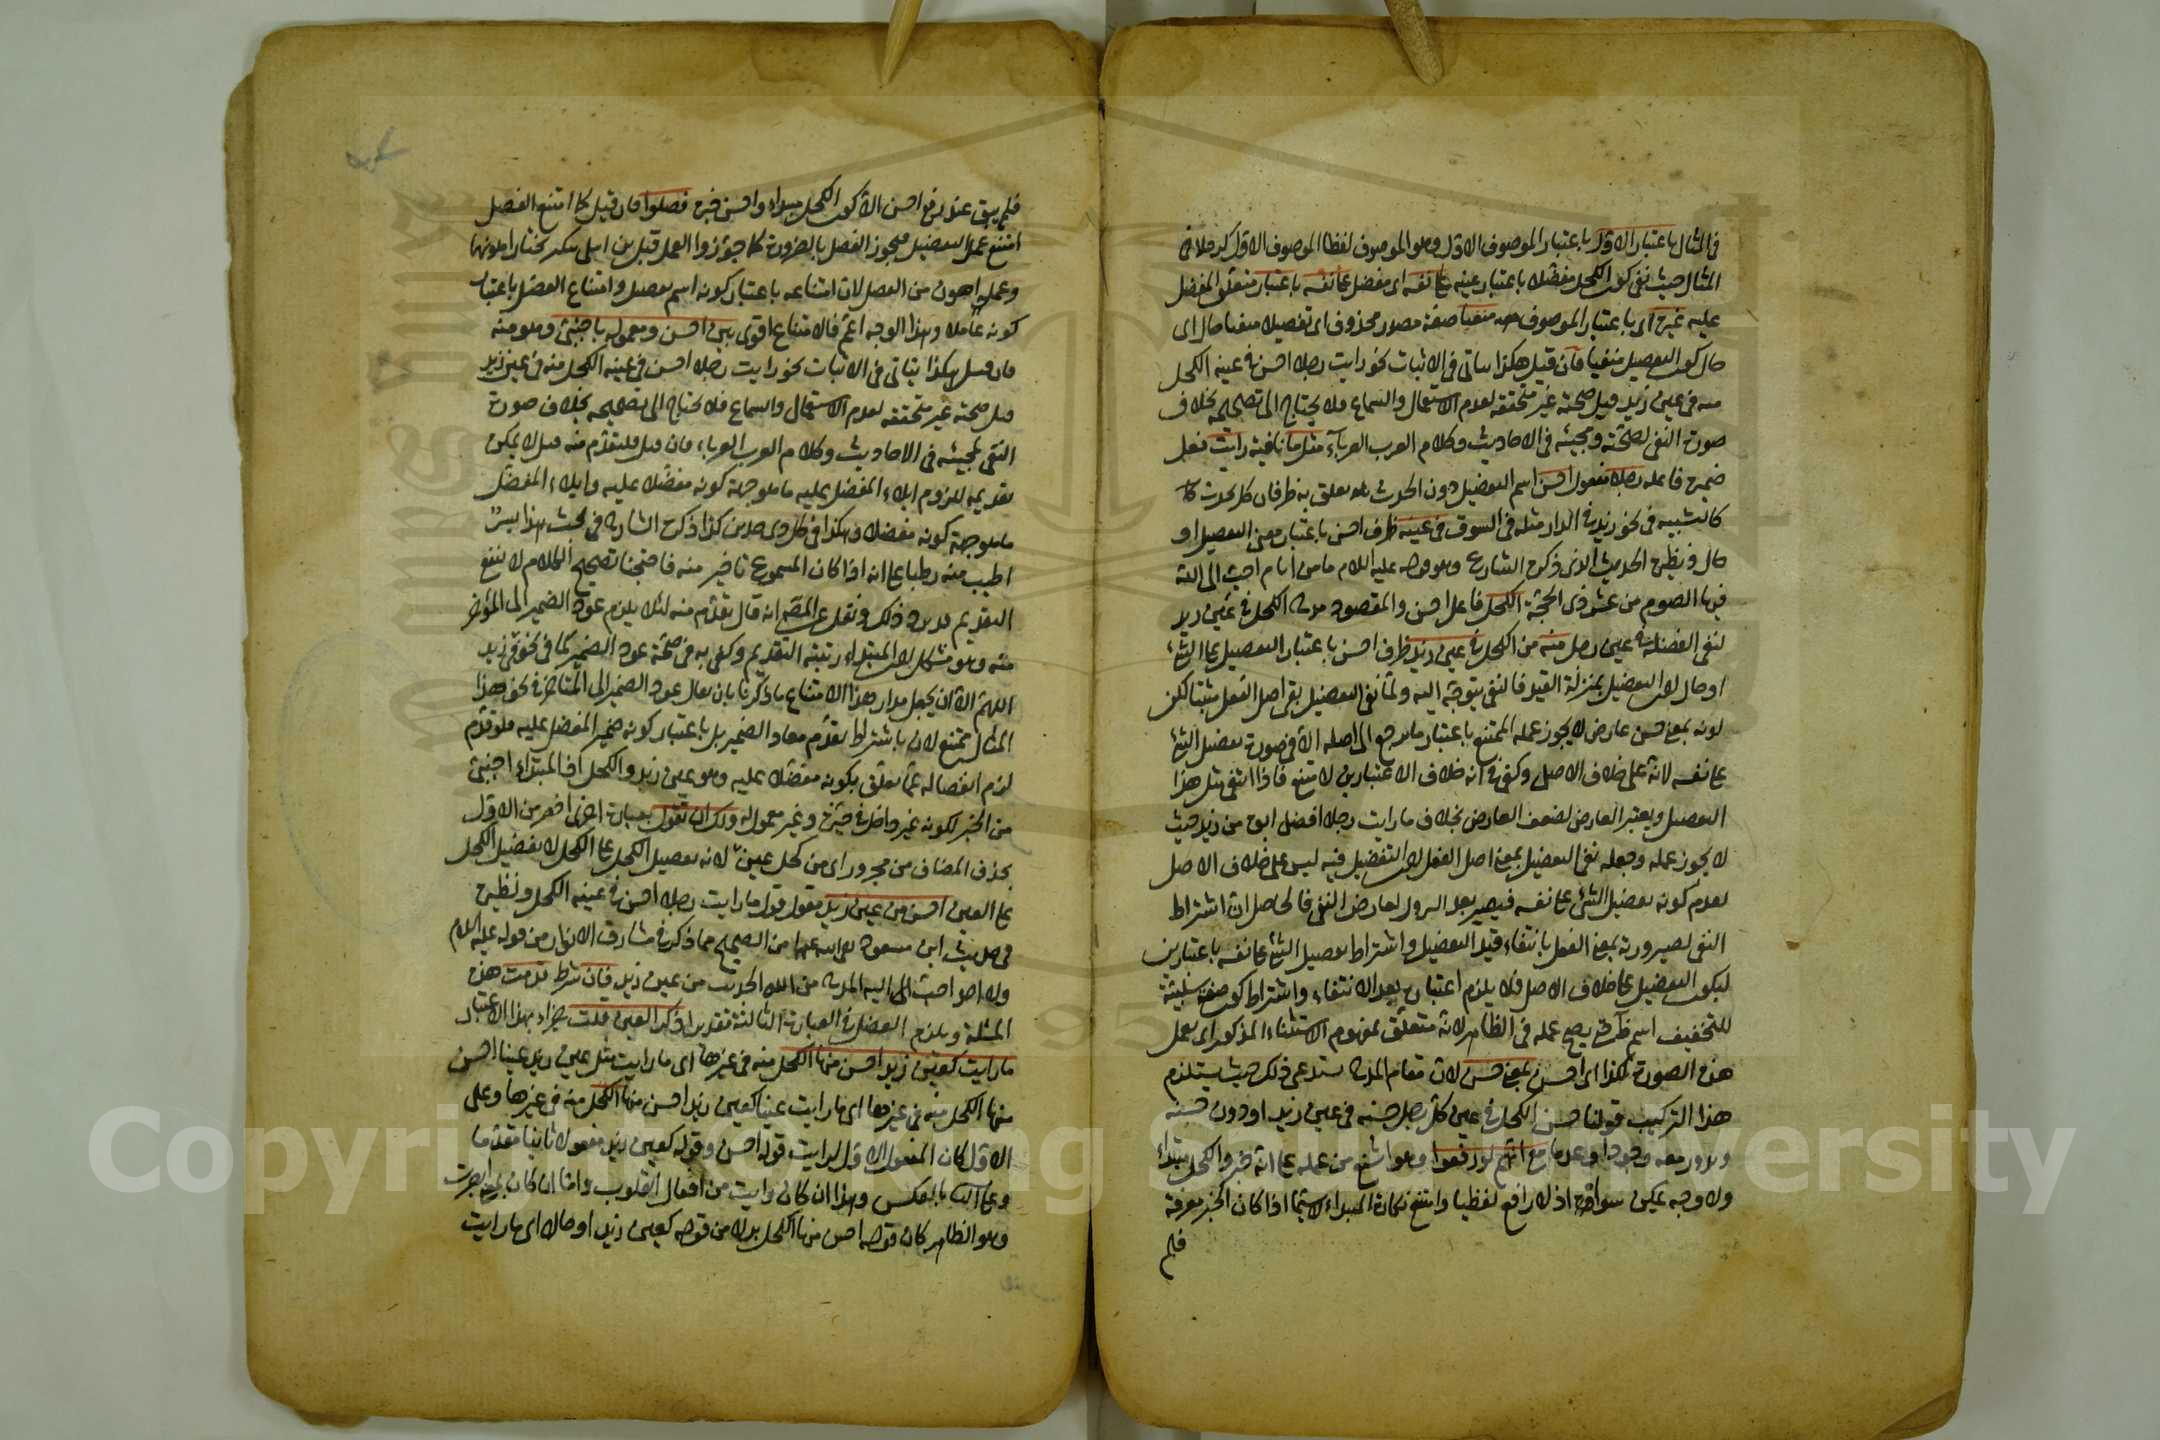 في المثال باعتبار الاول باعتبار الموصوف الاول وهو الموصوف لفظا الموصوف الاول كرجلا في
المثال حيث نفي كون الكحل مفضلا باعتبار عينه على نفسه اى مفضل على نفسه باعتبار متعلق المفضل
عليه غيره اى باعتبار الموصوف منفيا صفة مصدر محذوف اى تفضيلا منفيا حال اى
حال كون التفضيل منفيا فان قيل هكذا يتأتى في الاثبات نحو رايت رجلا احسن في عينه الكحل
منه في عين زيد قيل صحته غير متحققة لعدم الاستعمال والسماع فلا يحتاج الى تصحيحه بخلاف
صورة النفي لصحته ومجيئه في الاحاديث وكلام العرب العرباء مثل ما نافية رايت فعل
ضميره فاعله رجلا مفعول احسن اسم التفضيل دون الحدث
كالتشبيه في نحو زيد في الدار مثله في السوق في عينه ظرف احسن باعتبار معنى التفضيل او
حال ونظيره الحديث الذي ذكره الشارع وهو قوله عليه السلام ما من ايام احب الى الله
فيها الصوم من عشر ذي الحجة الكحل فاعل احسن والمقصود مدح الكحل في عين زيد
لنفي الفضل في عين رجل منه من الكحل في عين زيد ظرف احسن باعتبار التفضيل على الشئ
او حال لان التفضيل بمنزلة القيد فالنفي يتوجه اليه ولما نفي التفضيل بقي اصل الفعل مثبتا لكن
كونه بمعنى حسن عارض لا يجوز عمله الممتنع باعتبار ما يرجع الى اصله الا في صورة تفضيل الشئ
على نفسه لانه على خلاف الاصل وكفى في انه خلاف الاعتبارين لا يمتنع فاذا انتفى مثل هذا
التفضيل ويعتبر العارض لضعف العارض بخلاف ما رايت رجلا افضل ابوه من زيد حيث
لا يجوز عمله وجعله نفي التفضيل بمعنى اصل الفعل لان التفضيل فيه ليس على خلاف الاصل
لعدم كونه تفضيل الشئ على نفسه فيصير بعد النفي فالحاصل ان اشتراط
النفي لصيرورته بمعنى الفعل بانتفاء قيد التفضيل واشتراط تفضيل الشئ على نفسه باعتبارين
ليكون التفضيل على خلاف الاصل فلا يلزم اعتباره بعد الانتفاء واشتراط كون صفة سببية
للتحقيق اسم ظاهر حتى يصح عمله في الظاهر لانه متعلق بمفهوم الاستثناء المذكور اى يعمل
هذه الصورة هكذا اى احسن بمعنى حسن لان مقام المدح يستدعي ذلك حيث يستلزم
هذا التركيب قولنا حسن الكحل في عين كل رجل حسنه في عين زيد او دون حسنه
ويدور معه وجودا وعدما مع انهم لو رفعوا وهو اشنع من عمله على انه خبر والكحل مبتداء
ولا وجه يمكن سواه اذ لا رافع لفظيا وامتنع نكارة المبتداء لا سيما اذا كان الخبر معرفة
فلم
فلم يبق عند رفع احسن الا كون الكحل مبتداء واحسن خبره فصلوا فان قيل كما امتنع الفصل
امتنع عمل التفضيل فيجوز الفصل بالضرورة كما جوزوا العمل قيل من ابتلي ببليتين يختار اهونهما
وعمله اهون من الفصل لان امتناعه باعتبار كونه اسم تفضيل وامتناع الفصل باعتبار
كونه عاملا وهذا الوجه اعم فالامتناع اقوى بين احسن ومعموله باجنبي وهو منه
فان قيل هكذا يتأتى في الاثبات نحو رايت رجلا احسن في عينه الكحل منه في عين زيد
قيل صحته غير متحققة لعدم الاستعمال والسماع فلا يحتاج الى تصحيحه بخلاف صورة
النفي لمجيئه في الاحاديث وكلام العرب العرباء فان قيل فليتقدم منه قيل لا يمكن
تقديمه للزوم ايلاء المفضل عليه ما هو جهة كونه مفضلا عليه وايلاء المفضل
ما هو جهة كونه مفضلا وهكذا في كل ذي جهتين كذا ذكره الشارح في بحث هذا بسرا
اطيب منه رطبا على انه اذا كان المسموع تاخير منه فاحتجنا تصحيح الكلام لا ينفع
التقديم فلا يرد ذلك ونقل عن المص انه قال تقدم منه لئلا يلزم عود الضمير الى المؤخر
منه وهو مشكل لان المبتداء رتبته التقديم وكفى به في صحة عود الضمير كما في نحو في زيد
اللهم الا ان يجعل مدار هذا الامتناع ما ذكرنا بان يقال عود الضمير الى المتاخر في نحو هذا
المثال ممتنع لان باشتراط تقدم معاد الضمير بل باعتبار كونه ضمير المفضل عليه فلو قدم
لزم انفصاله عما تعلق بكونه مفضلا عليه وهو عين زيد والكحل اى المبتداء اجنبي
من الخبر لكونه غير داخل في حيزه وغير معمول له ولك ان تقول بعبارة اخرى اخصر من الاول
بحذف المضاف من مجرور اى من كحل عين لانه تفضيل الكحل على الكحل لا تفضيل الكحل
على العين احسن من عين زيد مقول قول ما رايت رجلا احسن في عينه الكحل ونظيره
في حديث ابن مسعود رضي الله عنه من الصحيح مما ذكره في مشارق الانوار من قوله عليه السلام
ولا احد احب اليه المدح من الله الحديث من عين زيد فان شرط قدمت هذه
المثلة ويلزم الفصل في العبارة الثالثة تقديرا ذكر العين قلت جزاء بهذا الاعتبار
ما رايت كعين زيد احسن منها الكحل منه في غيرها اى ما رايت مثل عين زيد عينا احسن
منها الكحل منه في غيرها اى ما رايت عينا كعين زيد احسن منها الكحل منه في غيرها وعلى
الاول كان المفعول الاول لرايت قوله احسن وقوله كعين زيد مفعولا ثانيا مقدما
وعلى الثاني بالعكس وهذا ان كان رايت من افعال القلوب واما ان كان بمعنى ابصرت
وهو الظاهر كان قوله احسن منها الكحل بدلا من قوله كعين زيد او حالا اى ما رايت
Copyright © King Saud University